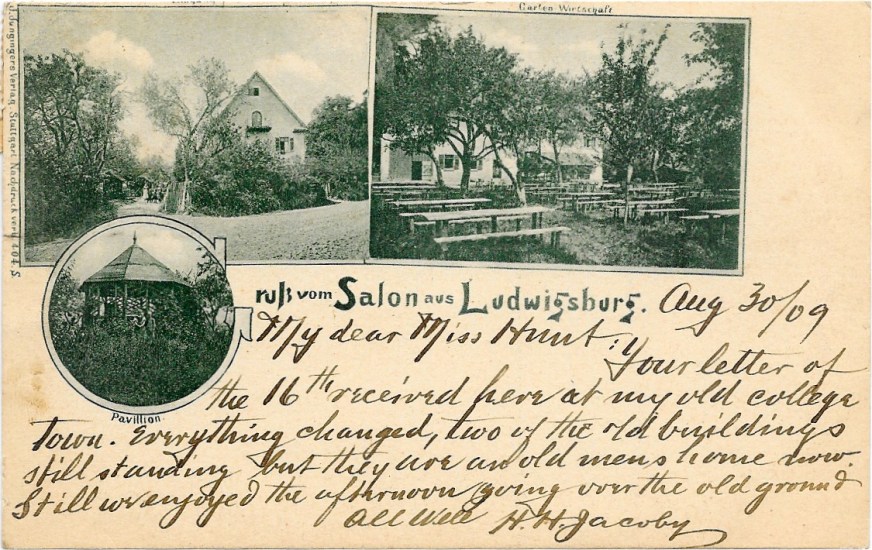 Garten-Wirtschaft
Gruß vom Salon aus Ludwigsburg.
Pavillion.
Aug 30/09
My dear Miss Hunt: Your letter of
the 16th received here at my old college
town. Everything changed, two of the old buildings
still standing but they are an old mens home now.
Still we enjoyed the afternoon going over the old ground
All well H. H. Jacoby
Verlag Stuttgart. Nachdruck verb. 404. S.